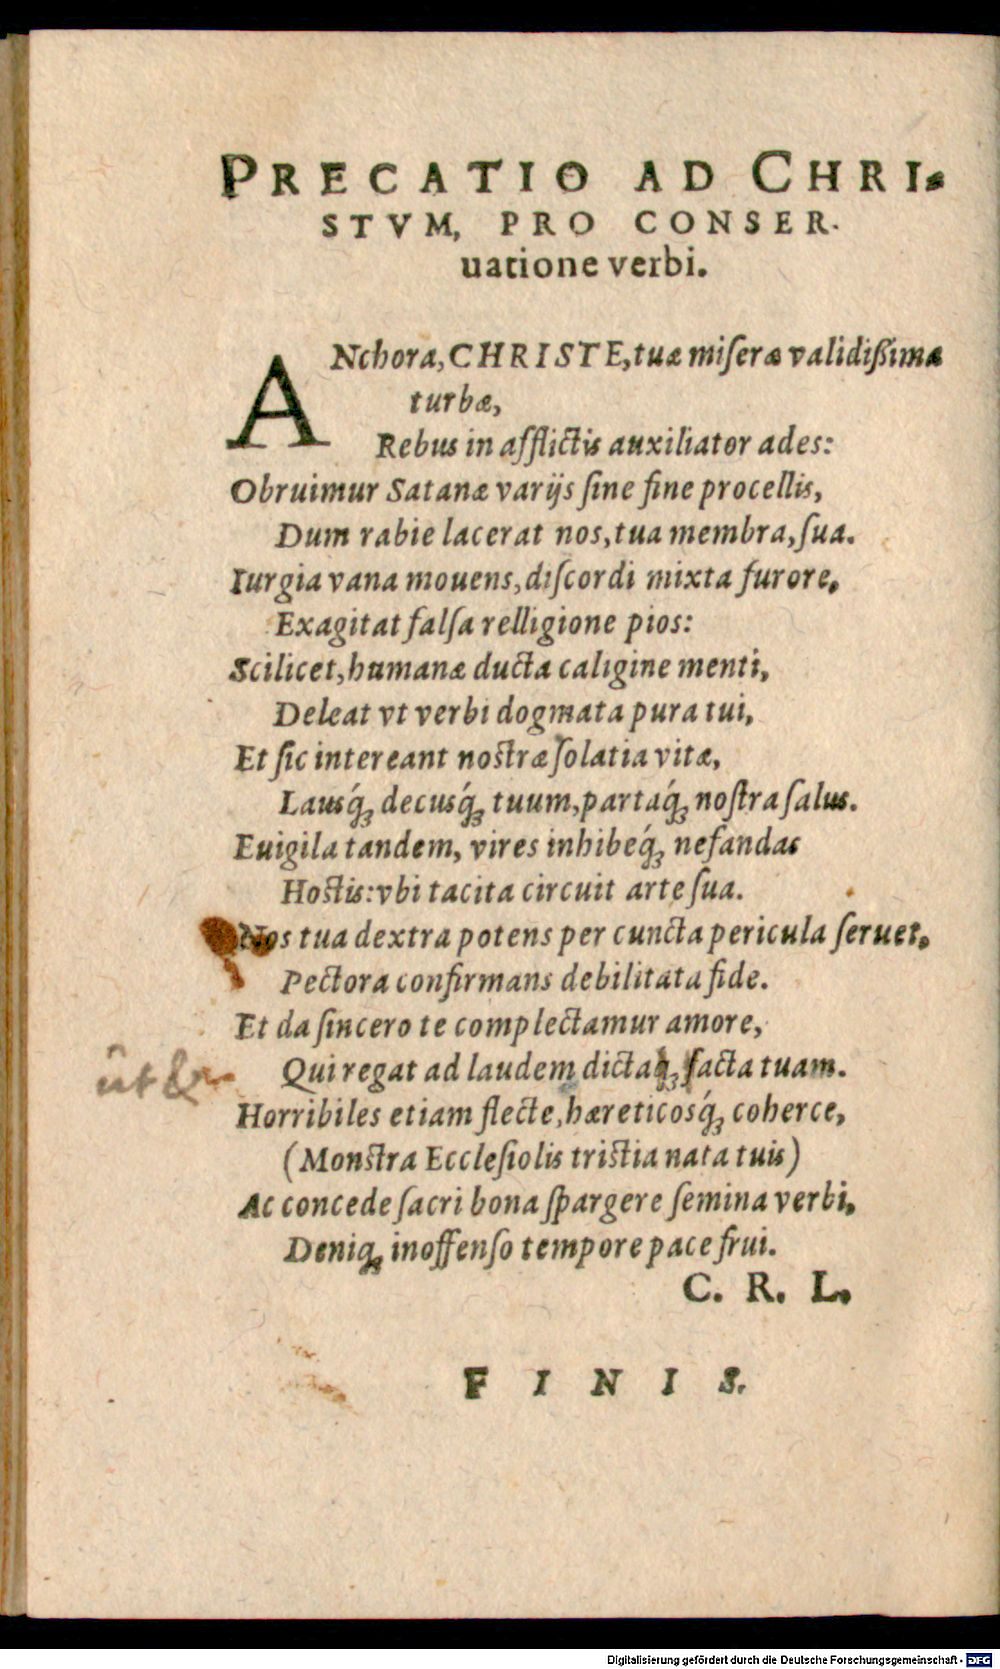 PRECATIO AD CHRI-
STVM, PRO CONSER-
uatione verbi.
ANchora, CHRISTE, tuæ miseræ validißimæ
turbæ,
Rebus in afflictis auxiliator ades:
Obruimur Satanæ varijs sine fine procellis,
Dum rabie lacerat nos, tua membra, sua.
Iurgia vana mouens, discordi mixta furore,
Exagitat falsa relligione pios:
Scilicet, humanæ ducta caligine menti,
Deleat vt verbi dogmata pura tui,
Et sic intereant nostræ solatia vitæ,
Lausq́; decusq́; tuum, partaq́; nostra salus.
Euigila tandem, vires inhibeq́; nefandas
Hostis: vbi tacita circuit arte sua.
Nos tua dextra potens per cuncta pericula seruet,
Pectora confirmans debilitata fide.
Et da sincero te complectamur amore,
Qui regat ad laudem dictaq; facta tuam.
Horribiles etiam flecte, hæreticosq́; coherce,
(Monstra Ecclesiolis tristia nata tuis)
Ac concede sacri bona spargere semina verbi,
Deniq; inoffenso tempore pace frui.
C. R. L.
FINIS.
Digitalisierung gefördert durch die Deutsche Forschungsgemeinschaft - DFG